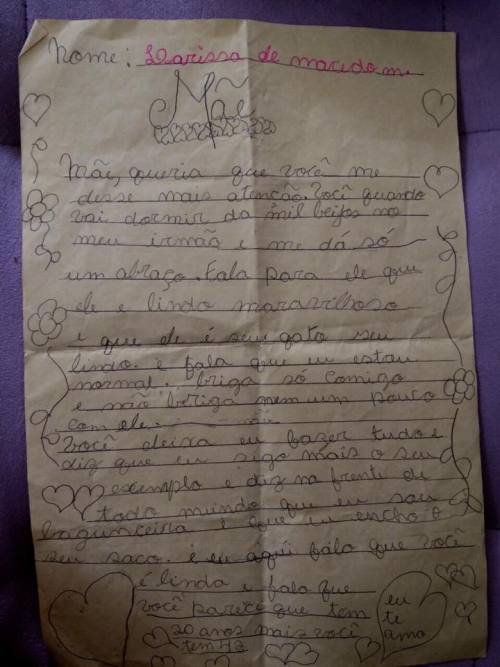 Nome: Larissa de macedo m
Mãe
Mãe, queria que você me
desse mais atenção. Você quando
vai dormir da mil beijos no
meu irmão e me dá só
um abraço. Fala para ele que
ele e lindo maravilhoso
e que ele é seu gato seu
lindo. e fala que eu estou
normal. briga só comigo
e não briga nem um pouco
com ele.
Você deixa eu fazer tudo e
diz que eu sigo mais o seu
exemplo e diz na frente de
todo mundo que eu sou
bagunceira e que eu encho o
seu saco. e eu aqui fala que você
é linda e fala que
você parece que tem
20 anos mais você
tem 42
eu
te
amo